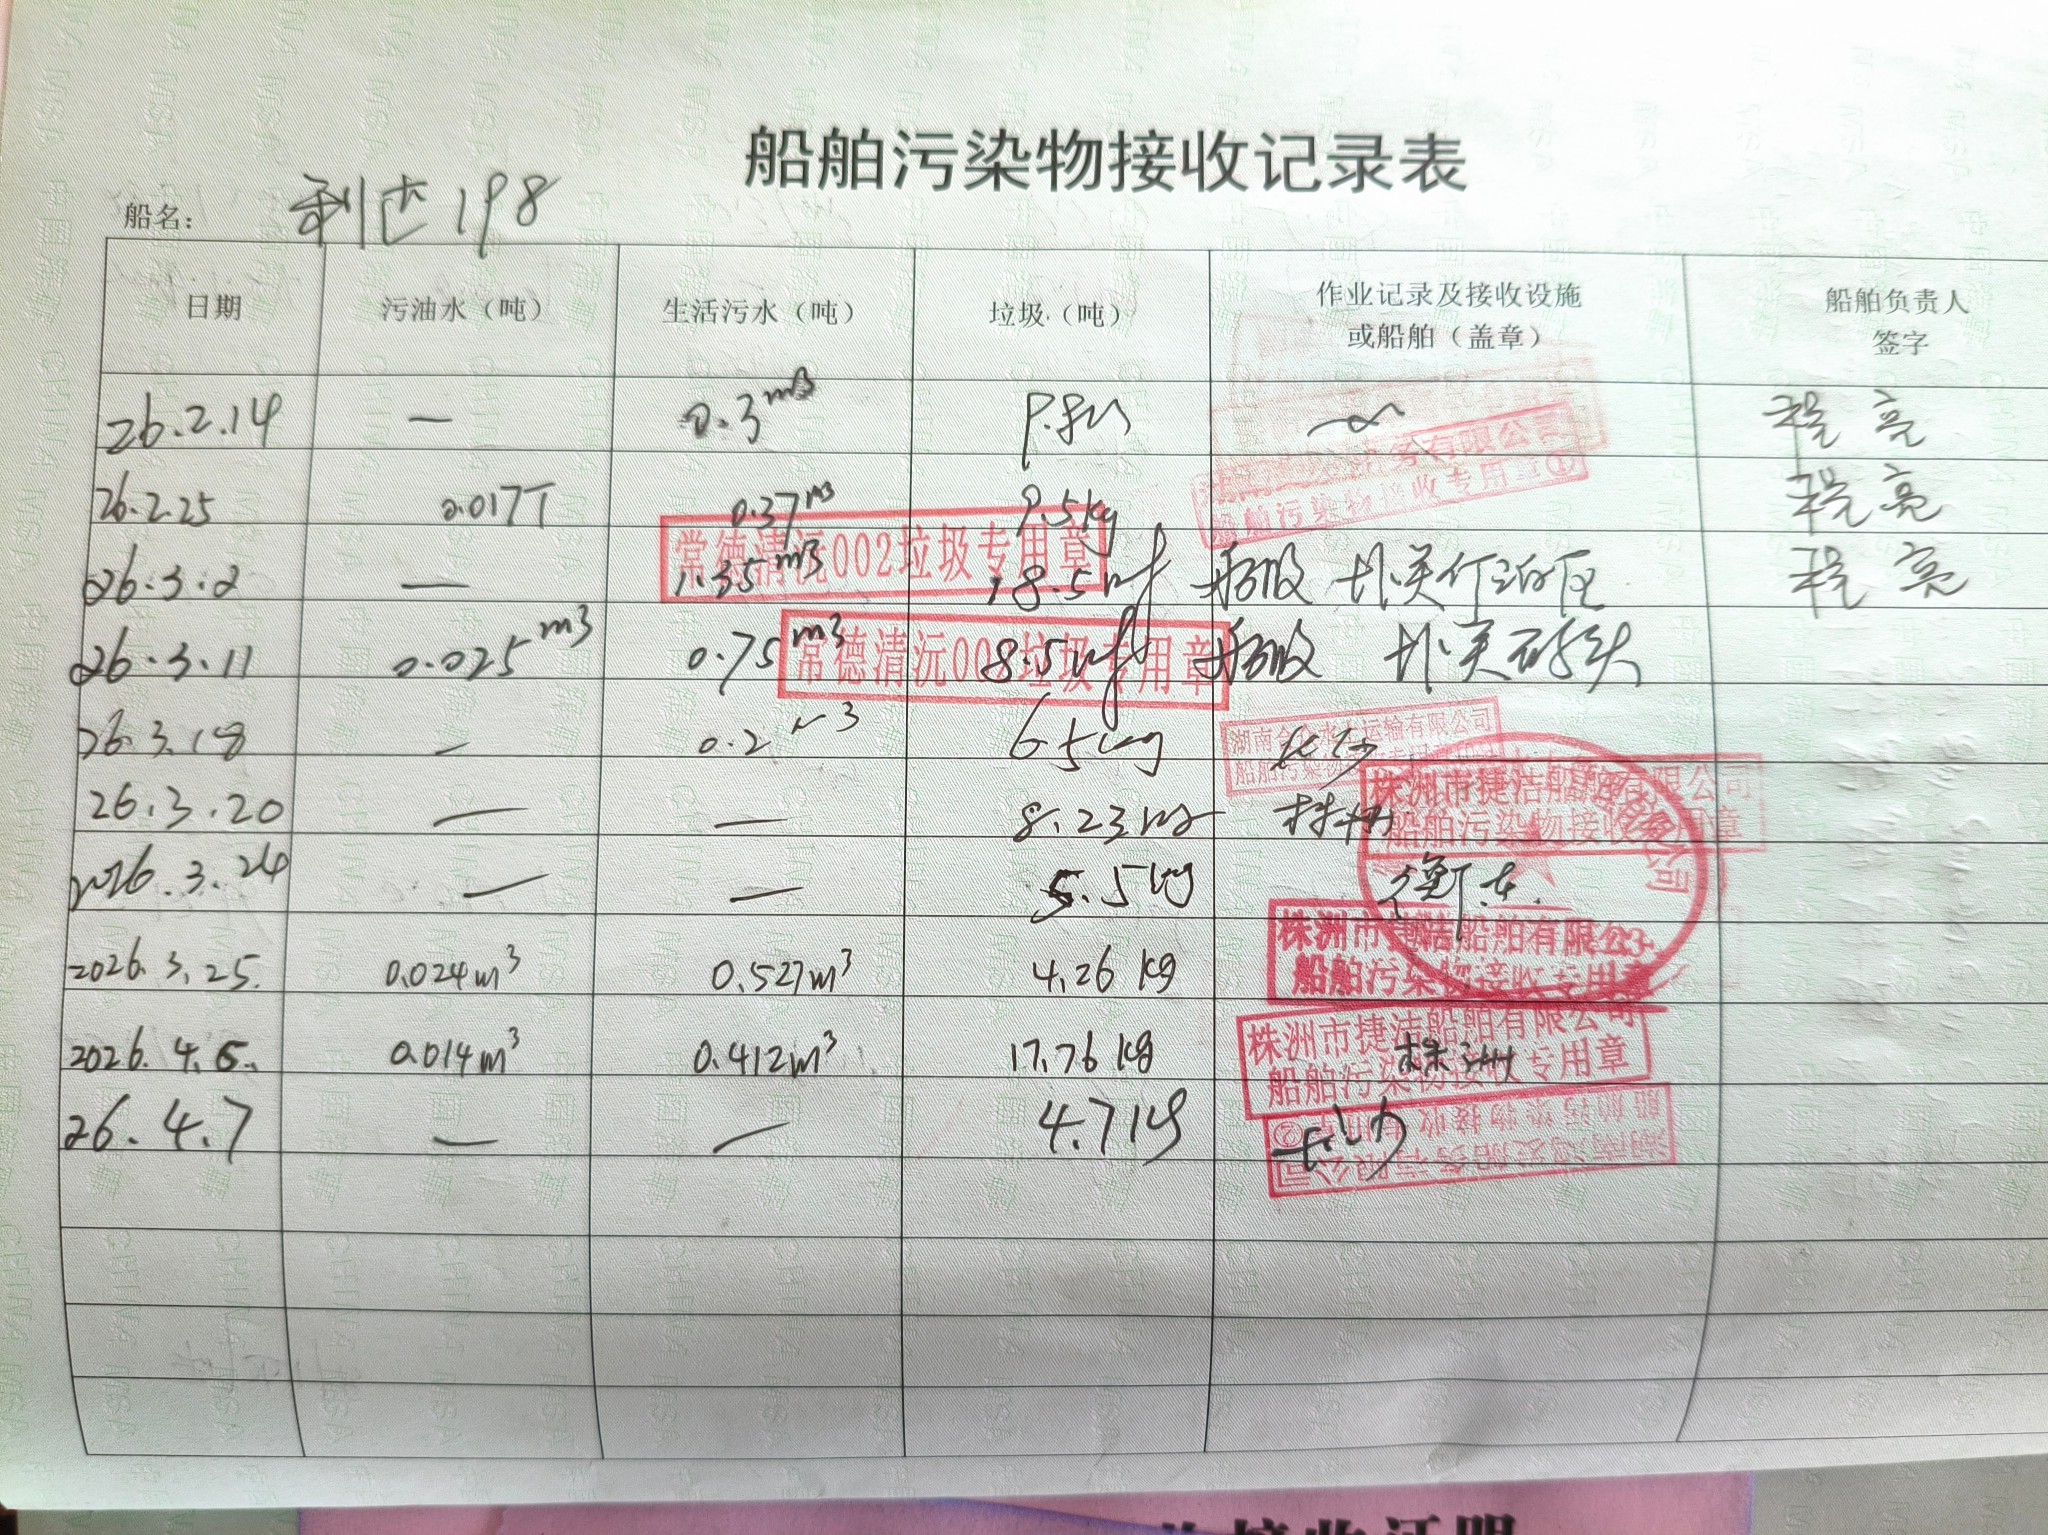 船舶污染物接收记录表
船名： 利达198
日期 污油水（吨） 生活污水（吨） 垃圾（吨） 作业记录及接收设施或船舶（盖章） 船舶负责人签字
26.2.14 — 0.3m3 9.8 程亮
26.2.25 0.017T 0.37m3 9.5kg 程亮
船务有限公司
船舶污染物接收专用章①
常德清沅002垃圾专用章
26.3.2 — 1.35m3 18.5 程亮
26.3.11 0.025m3 0.75m3 8.5
常德清沅002垃圾专用章
26.3.18 — 0.2m3 6.5kg 长沙
水上运输有限公司
船舶污染物
26.3.20 — — 8.23 株洲
株洲市捷洁船舶有限公司
船舶污染物接收专用章
2026.3.24 — — 5.5kg 衡东
2026.3.25. 0.024m3 0.527m3 4.26kg
株洲市捷洁船舶有限公司
船舶污染物接收专用章
2026.4.6. 0.014m3 0.412m3 17.76kg 株洲
株洲市捷洁船舶有限公司
船舶污染物接收专用章
26.4.7 — — 4.71kg 长沙
船舶污染物接收专用章②